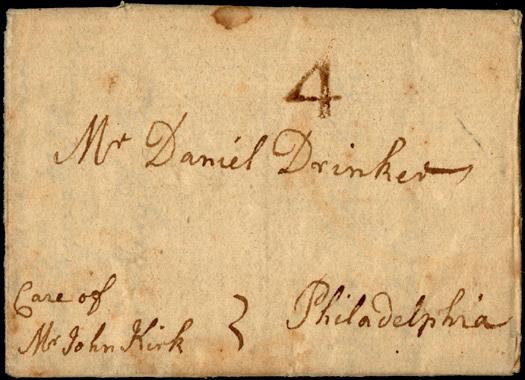 4
Mr Daniel Drinker
Care of
Mr John Kirk } Philadelphia